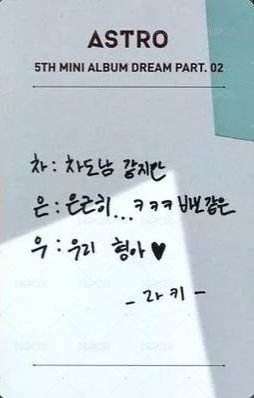 ASTRO
5TH MINI ALBUM DREAM PART. 02
차 : 차도남 같지만
은 : 은근히... ㅋㅋㅋ 바보같은
우 : 우리 형아 ♥
- 라키 -